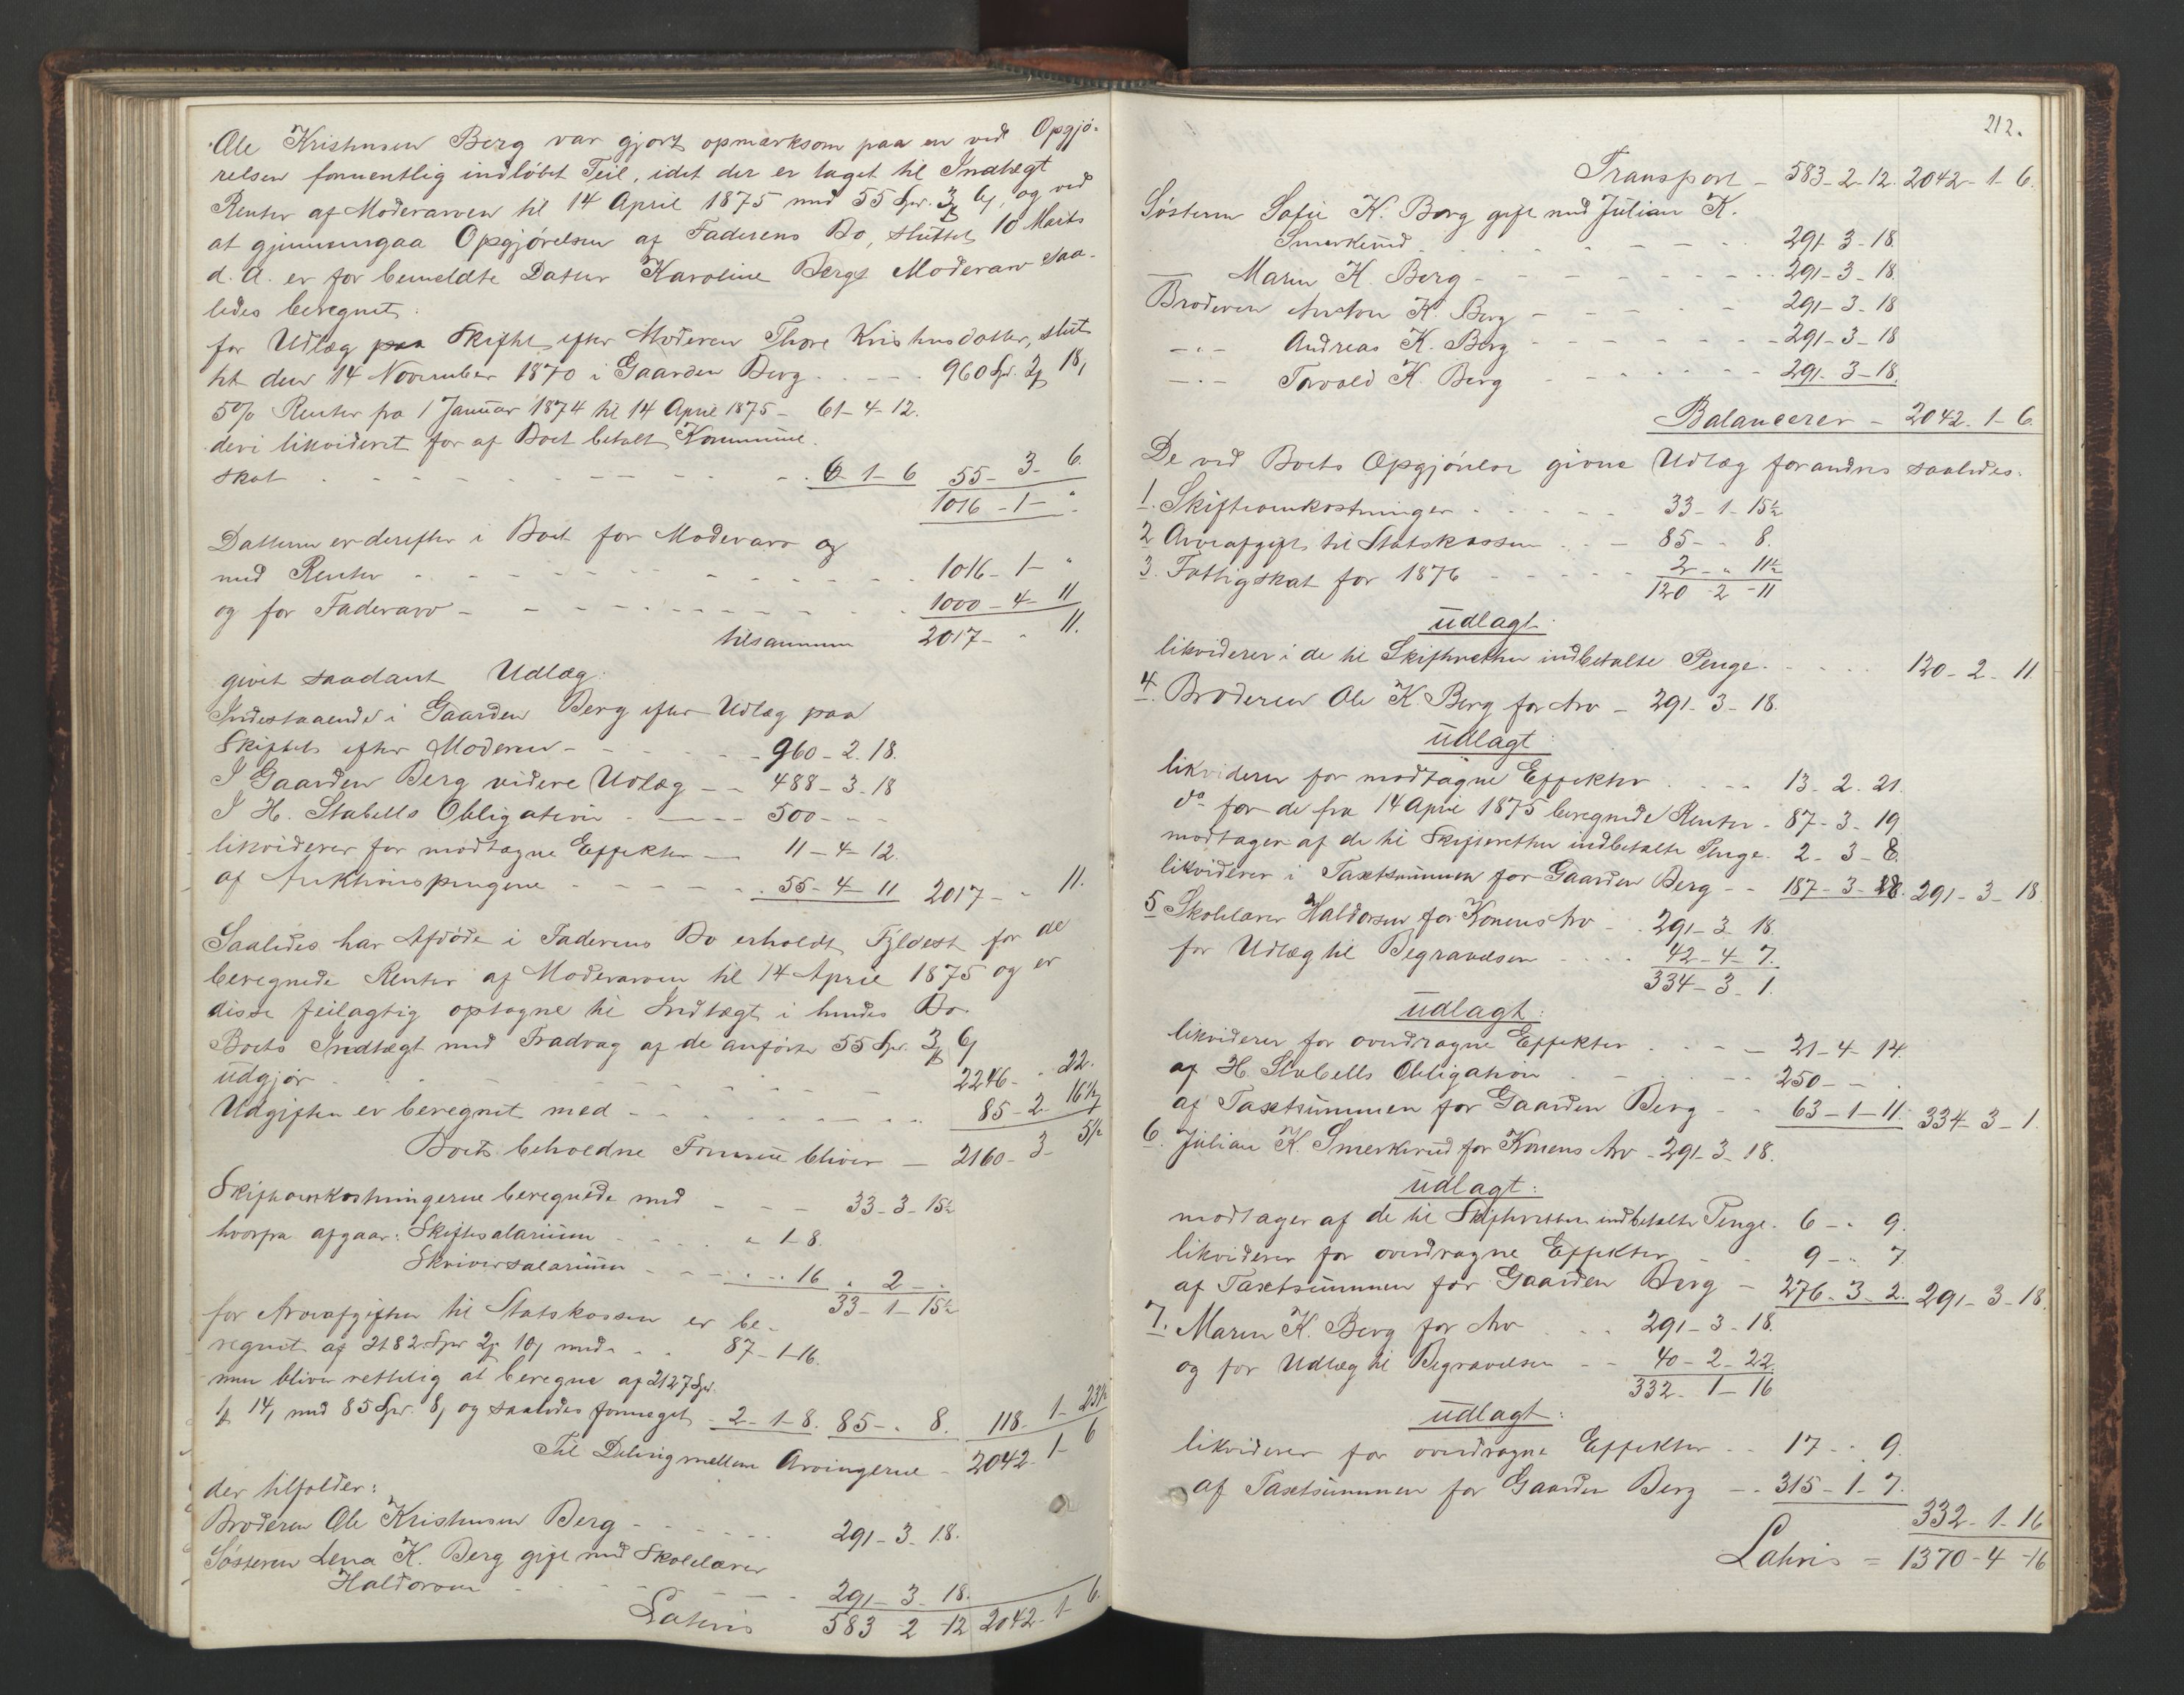 Ole Kristensen Berg var gjort opmærksom paa en ved Opgjø-
relsen formentlig indløbet Feil, idet der er taget til Indtægt
Renter af Moderarven til 14 April 1875 med 55 Spr. 3 6, og ved
at gjennemgaa Opgjørelsen af Faderens Bo, sluttet 10 Marts
d. A. er for bemeldte Datter Karoline Bergs Moderarv saa-
ledes beregnet:
for Udlæg paa Skiftet efter Moderen Thore Kristensdatter, slut-
tet den 14 November 1870 i Gaarden Berg - 960 Spr. 2 18,
5% Renter fra 1 Januar 1874 til 14 April 1875 - 61-4-12.
deri likvideret for af Boet betalt Kommune-
skat - 6-1-6 55-3-6.
1016-1-"
Datteren er derefter i Boet for Moderarv og
med Renter - 1016-1-"
og for Faderarv - 1000-4-11
tilsammen 2017- " 11.
givet saadant Udlæg:
Indestaaende i Gaarden Berg efter Udlæg paa
Skiftet efter Moderen - 960-2-18.
I Gaarden Berg videre Udlæg - 488-3-18
I H. Stabells Obligation - 500- - -
likviderer for modtagne Effekter - 11-4-12.
af Auktionspengene - 55-4-11 2017- " 11.
Saaledes har Afdøde i Faderens Bo erholdt Fyldest for de
beregnede Renter af Moderarven til 14 April 1875 og er
disse feilagtig optagne til Indtægt i hendes Bo.
Boets Indtægt med Fradrag af de anførte 55 Spr. 3 6,
udgjør - 2246- " 22.
Udgiften er beregnet med - 85-2-16½
Boets beholdne Formue bliver - 2160-3-5½
Skifteomkostningerne beregnede med - 33-3-15½
hvorfra afgaar: Skiftesalarium - " 1-8.
Skriversalarium - " " 16 " 2 - "
33-1-15½
for Arveafgiften til Statskassen er be-
regnet af 2182 Spr 2 10, med - 87-1-16.
men bliver rettelig at beregne af 2127 Spr.
1 14, med 85 Spr. 8, og saaledes formeget - 2-1-8. 85- " 8. 118-1-23½
Til Deling mellem Arvingerne - 2042-1-6
der tilfalder:
Broderen Ole Kristensen Berg - 291-3-18.
Søsteren Lena K. Berg gift med Skolelærer
Haldorsen - 291-3-18.
Latris 583-2-12 2042-1-6.
212.
Transport - 583-2-12. 2042-1-6.
Søsteren Sofie K. Berg gift med Julian K.
Smerkerud - 291-3-18.
— Maren K. Berg - 291-3-18.
Broderen Anton K. Berg - 291-3-18
—"— Andreas K. Berg - 291-3-18
—"— Torvald K. Berg - 291-3-18.
Balancerer - 2042-1-6.
De ved Boets Opgjørelse givne Udlæg forandres saaledes.
1. Skifteomkostninger - 33-1-15½
2 Arveafgift til Statskassen - 85- " 8.
3. Fattigskat for 1876 - 2- " 11½
120-2-11
udlagt:
likviderer i de til Skifteretten indbetalte Penge - 120-2-11
4. Broderen Ole K. Berg for Arv - 291-3-18.
udlagt:
likviderer for modtagne Effekter - 13-2-21.
do for de fra 14 April 1875 beregnede Renter - 87-3-19
modtager af de til Skifteretten indbetalte Penge - 2-3-8.
likviderer i Taxtsummen for Gaarden Berg - 187-3-18. 291-3-18
5 Skolelærer Haldorsen for Konens Arv - 291-3-18.
for Udlæg til Begravelsen - 42-4-7.
334-3-1.
udlagt:
likviderer for overdragne Effekter - 21-4-14.
af H. Stabells Obligation - 250- - "
af Taxtsummen for Gaarden Berg - 63-1-11. 334-3-1.
6. Julian K. Smerkerud for Konens Arv - 291-3-18.
udlagt:
modtager af de til Skifteretten indbetalte Penge - 6- " 9.
likviderer for overdragne Effekter - 9- " 7.
af Taxtsummen for Gaarden Berg - 276-3-2. 291-3-18.
7. Maren K. Berg for Arv - 291-3-18.
og for Udlæg til Begravelsen - 40-2-22.
332-1-16
udlagt:
likviderer for overdragne Effekter - 17- " 9.
af Taxtsummen for Gaarden Berg - 315-1-7.
332-1-16
Latris = 1370-4-16